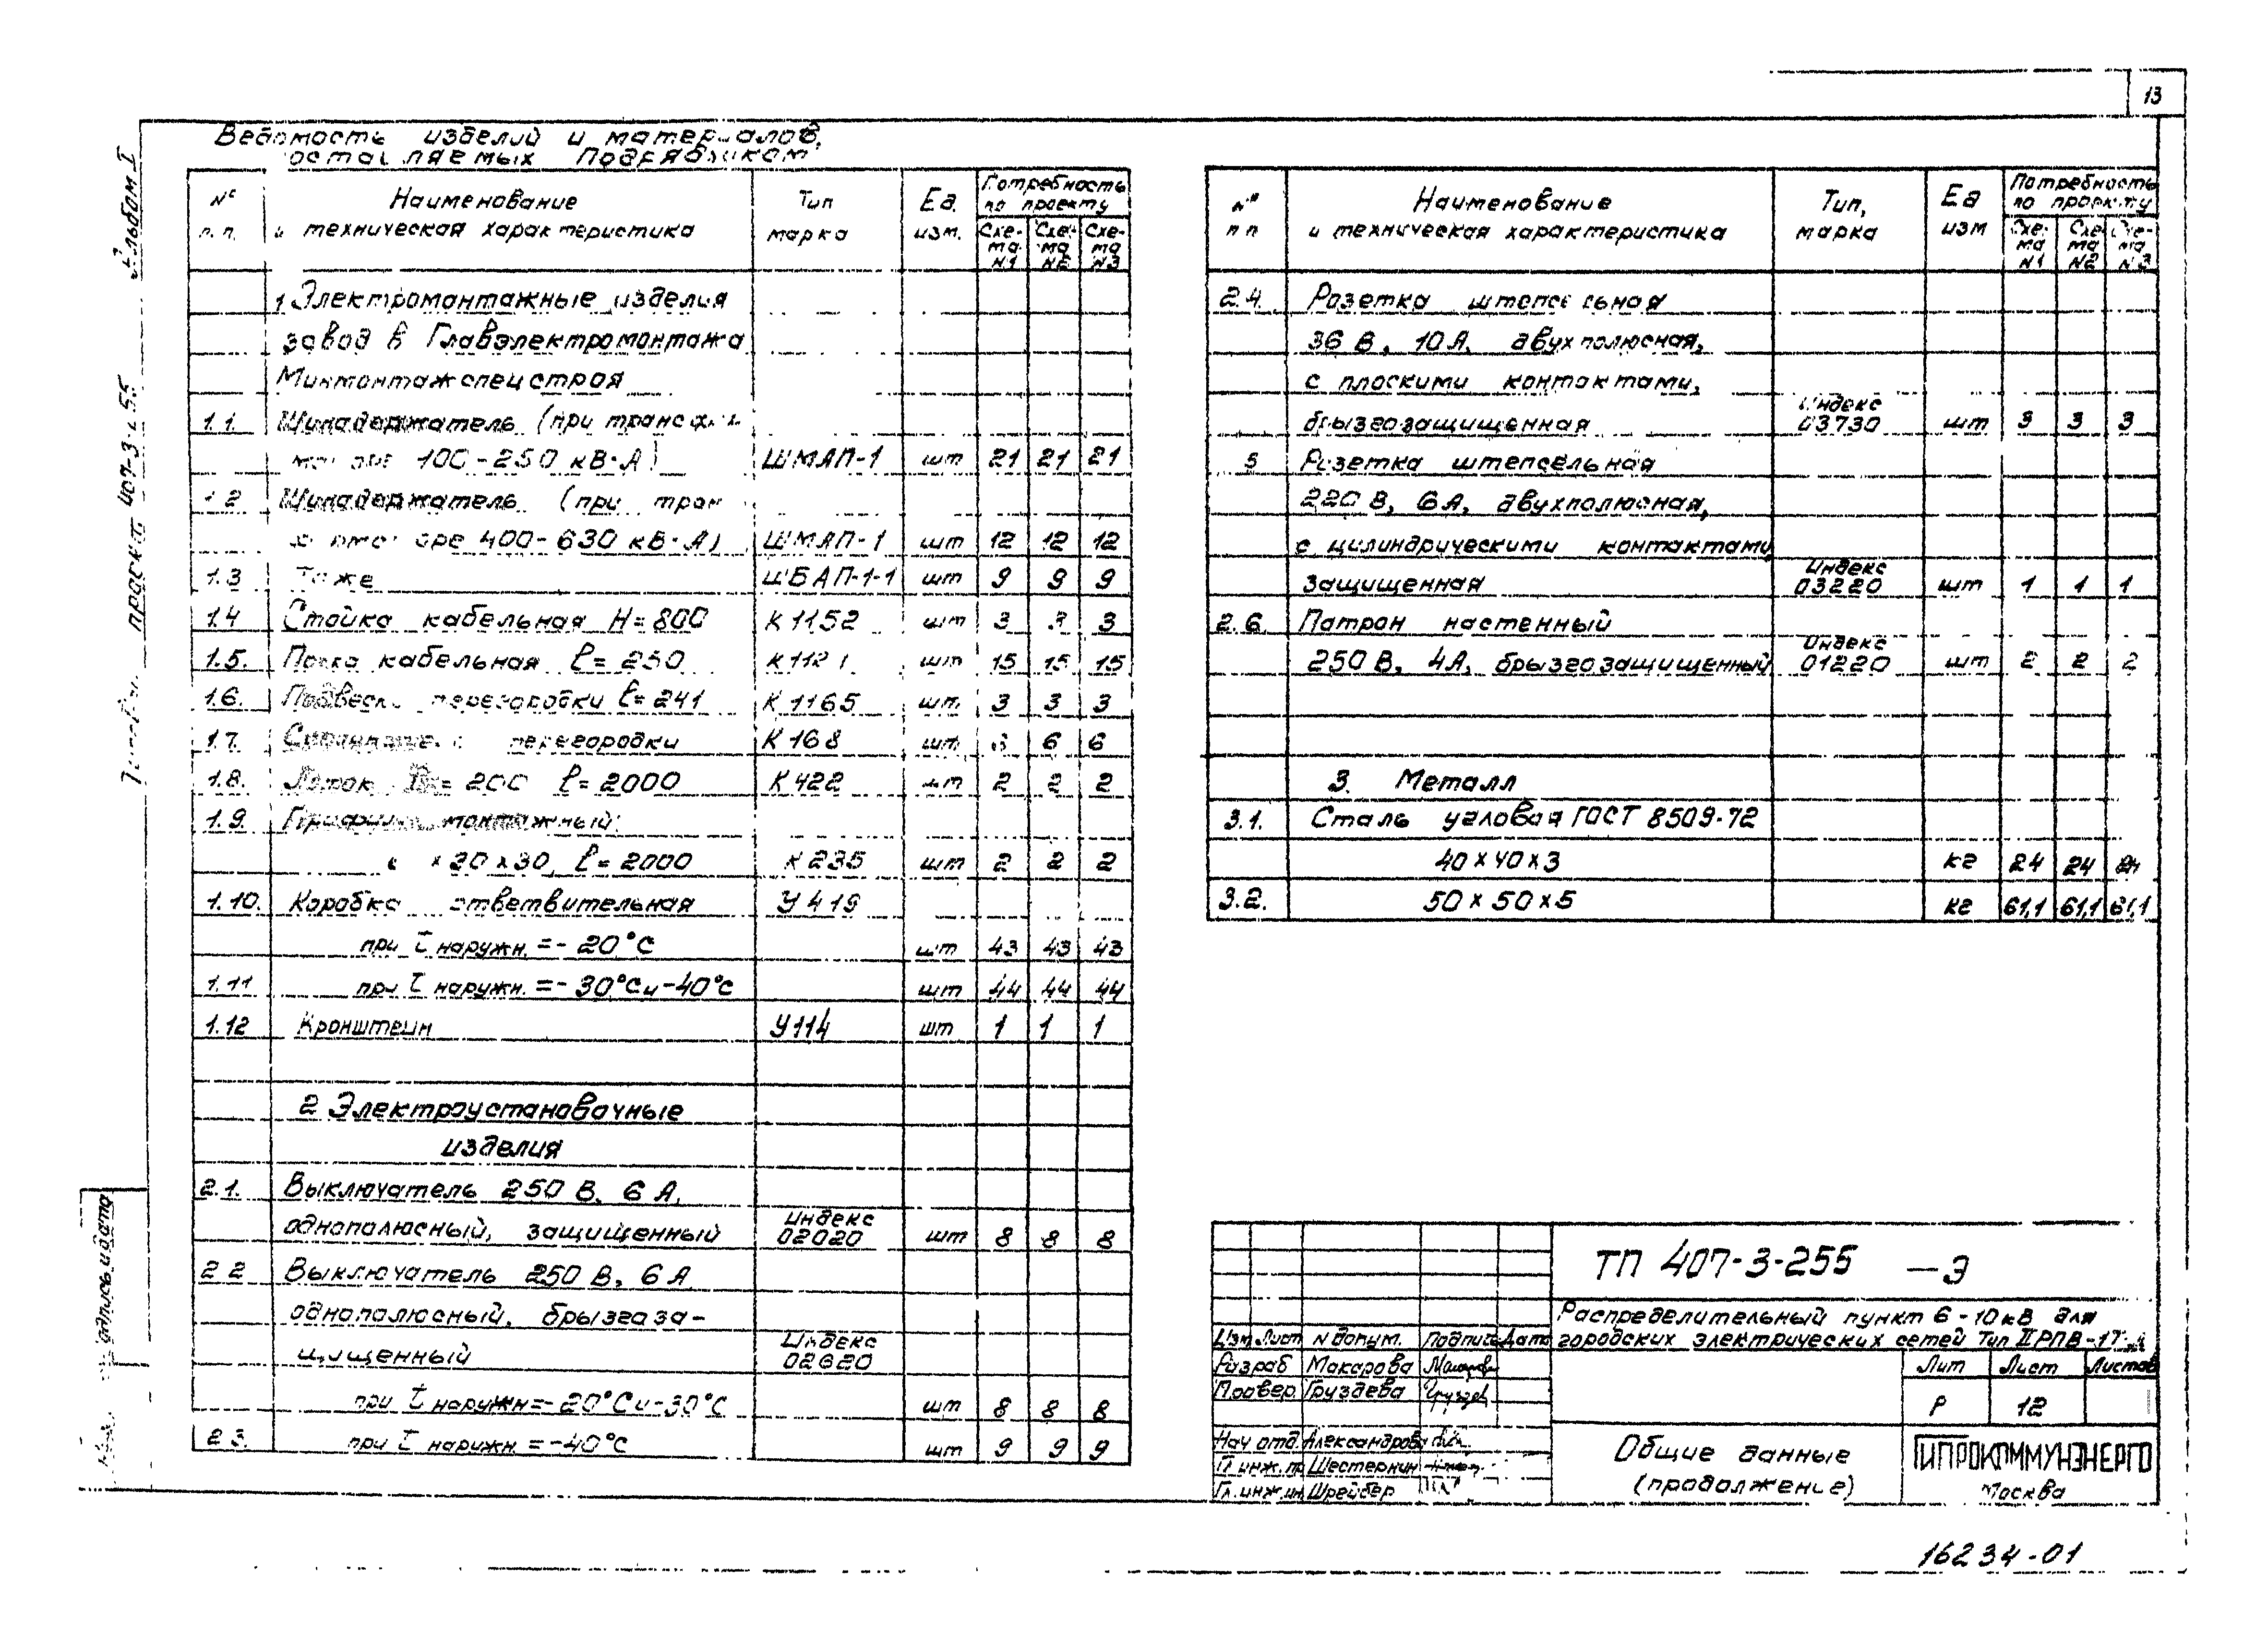 13
Ведомость изделий и материалов,
Подрядчиком
Альбом I
проект 407-3-255
Наименование Тип Ед. Потребность
п.п. и техническая характеристика марка изм. по проекту
Схе-ма N1 Схе-ма N2 Схе-ма N3
1 Электромонтажные изделия
завод в Главэлектромонтажа
Минмонтажспецстроя
1.1. Шинадержатель (при трансф
100-250 кВ·А) ШМАП-1 шт 21 21 21
1.2 Шинадержатель (при тран
400-630 кВ·А) ШМАП-1 шт 12 12 12
1.3 То же ШБАП-1-1 шт 9 9 9
1.4 Стойка кабельная H=800 К1152 шт 3 3 3
1.5. Полка кабельная ℓ=250 К1121 шт 15 15 15
1.6. Подвеска перегородки ℓ=241 К1165 шт. 3 3 3
1.7. перегородки К168 шт. 6 6
1.8. Лоток = 200 ℓ=2000 К422 шт 2 2 2
1.9. Профиль монтажный:
×30×30, ℓ=2000 К235 шт 2 2 2
1.10. Коробка ответвительная У419
при t наружн. =-20°С шт 43 43 43
1.11 при t наружн. =-30°Си-40°С шт 44 44 44
1.12 Кронштейн У114 шт 1 1 1
2 Электроустановочные
изделия
2.1. Выключатель 250 В, 6 А,
однополюсный, защищенный Индекс 02020 шт 8 8 8
2.2 Выключатель 250 В, 6 А
однополюсный, брызгоза-
щищенный Индекс 02620
при t наружн=-20°Си-30°С шт 8 8 8
2.3. при t наружн. =-40°С шт 9 9 9
Наименование Тип, Ед Потребность
п п и техническая характеристика марка изм по проекту
Схе-ма N1 Схе-ма N2 Схе-ма N3
2.4. Розетка штепсельная
36 В, 10А, двухполюсная,
с плоскими контактами,
брызгозащищенная Индекс 03730 шт 3 3 3
5 Розетка штепсельная
220 В, 6А, двухполюсная,
с цилиндрическими контактами
защищенная Индекс 03220 шт 1 1 1
2.6. Патрон настенный
250 В, 4А, брызгозащищенный Индекс 01220 шт 2 2 2
3. Металл
3.1. Сталь угловая ГОСТ 8509-72
40×40×3 кг 24 24 24
3.2. 50×50×5 кг 61,1 61,1 61,1
ТП 407-3-255 -Э
Распределительный пункт 6-10кВ для
городских электрических сетей Тип II РПВ-1Т
Изм Лист N докум. Подпись Дата
Разраб Макарова
Провер Груздева
Нач отд. Александрова
Гл.инж.пр Шестернин
Гл.инж.ин Шрейбер
Лит Лист Листов
Р 12
Общие данные
(продолжение)
ГИПРОКОММУНЭНЕРГО
Москва
подпись и дата
16234-01